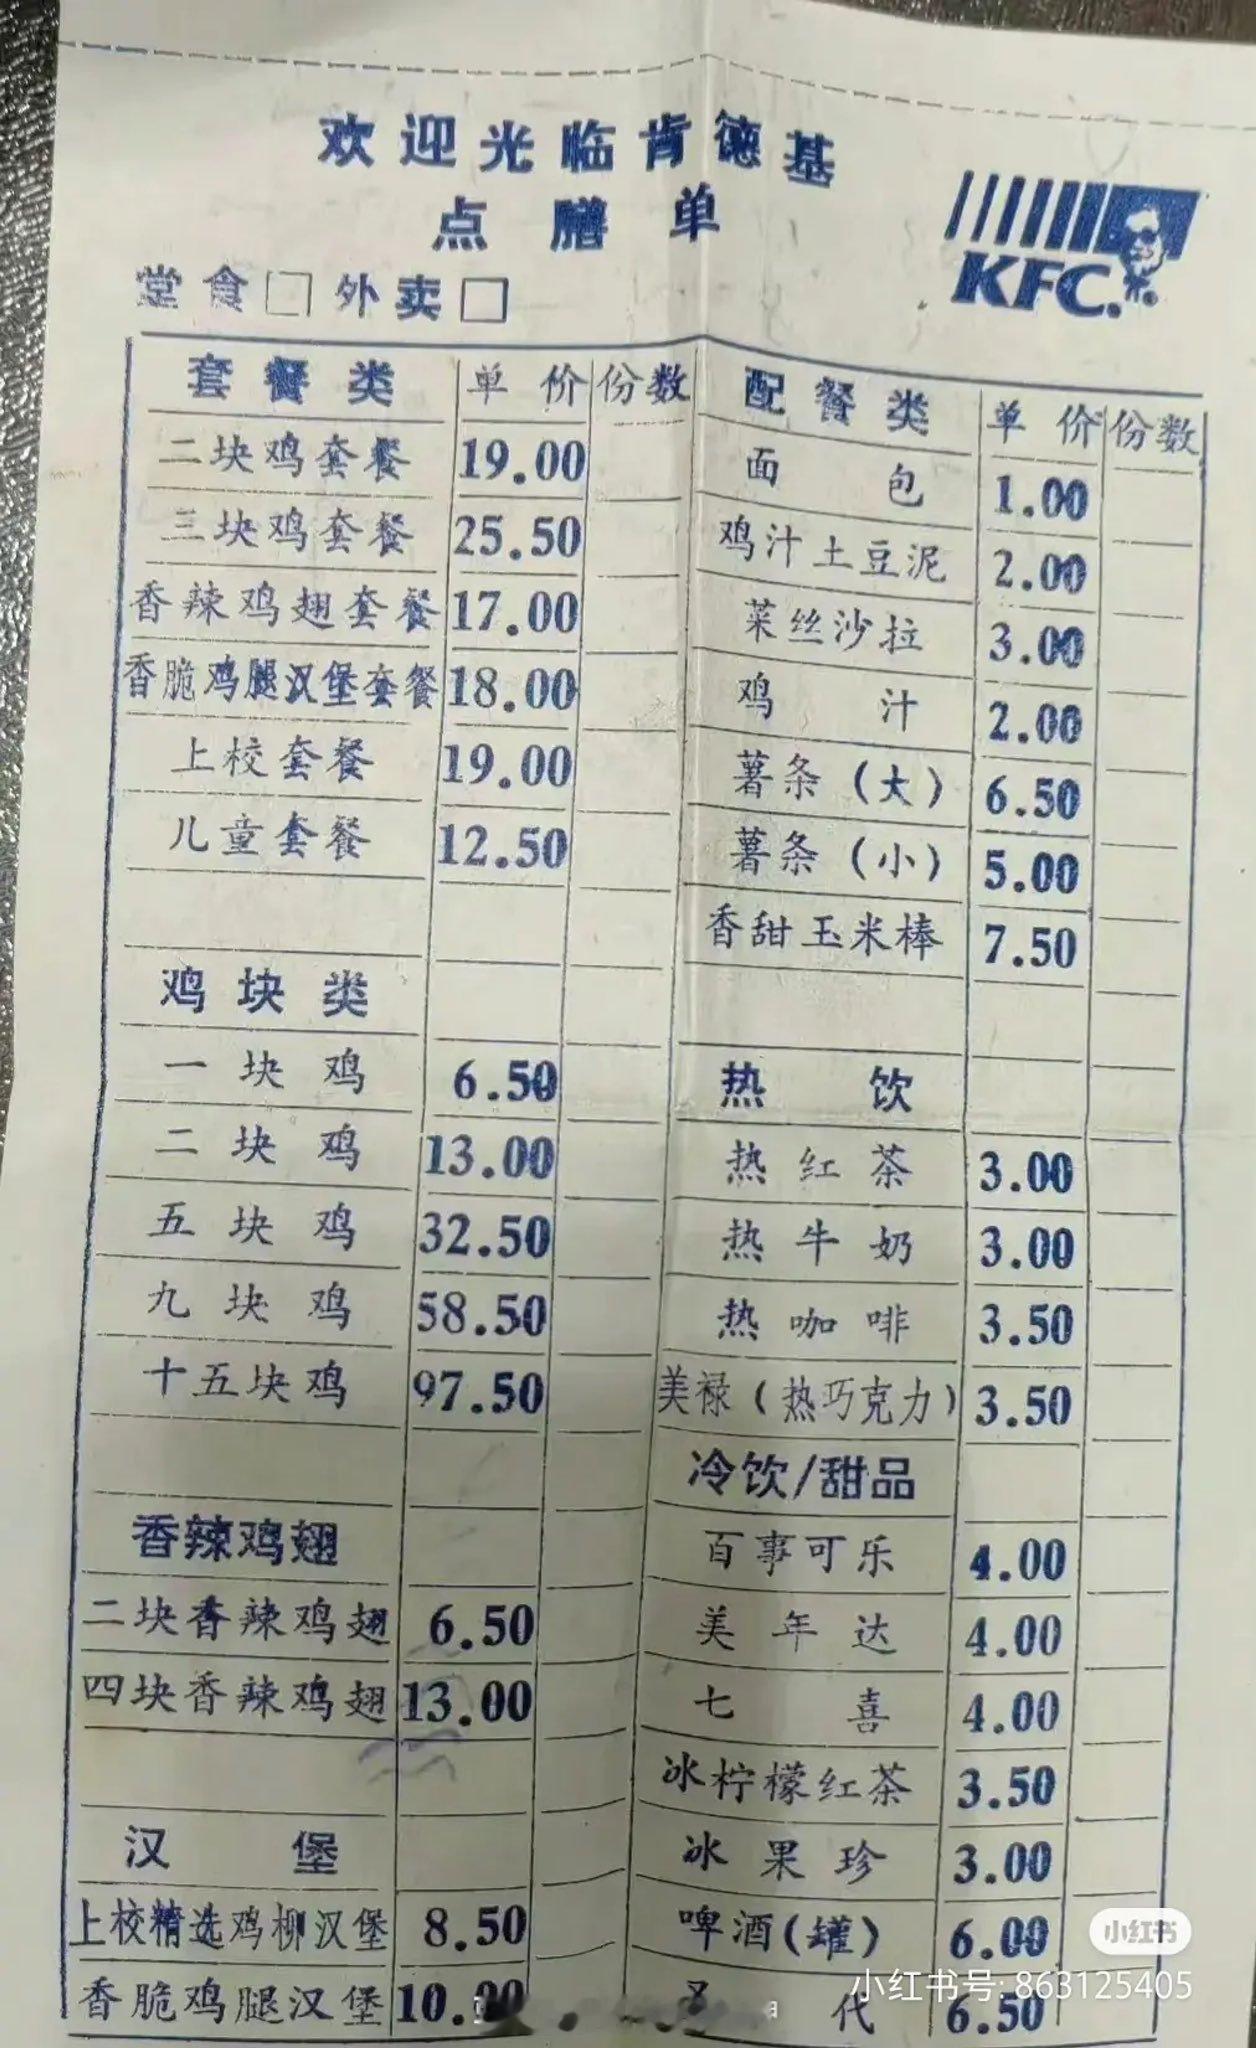 欢迎光临肯德基
点膳单
KFC
堂食□ 外卖□
套餐类 单价 份数
二块鸡套餐 19.00
三块鸡套餐 25.50
香辣鸡翅套餐 17.00
香脆鸡腿汉堡套餐 18.00
上校套餐 19.00
儿童套餐 12.50
鸡块类
一块鸡 6.50
二块鸡 13.00
五块鸡 32.50
九块鸡 58.50
十五块鸡 97.50
香辣鸡翅
二块香辣鸡翅 6.50
四块香辣鸡翅 13.00
汉堡
上校精选鸡柳汉堡 8.50
香脆鸡腿汉堡 10.00
配餐类 单价 份数
面包 1.00
鸡汁土豆泥 2.00
菜丝沙拉 3.00
鸡汁 2.00
薯条(大) 6.50
薯条(小) 5.00
香甜玉米棒 7.50
热饮
热红茶 3.00
热牛奶 3.00
热咖啡 3.50
美禄(热巧克力) 3.50
冷饮/甜品
百事可乐 4.00
美年达 4.00
七喜 4.00
冰柠檬红茶 3.50
冰果珍 3.00
啤酒(罐) 6.00
代 6.50
小红书
小红书号: 863125405